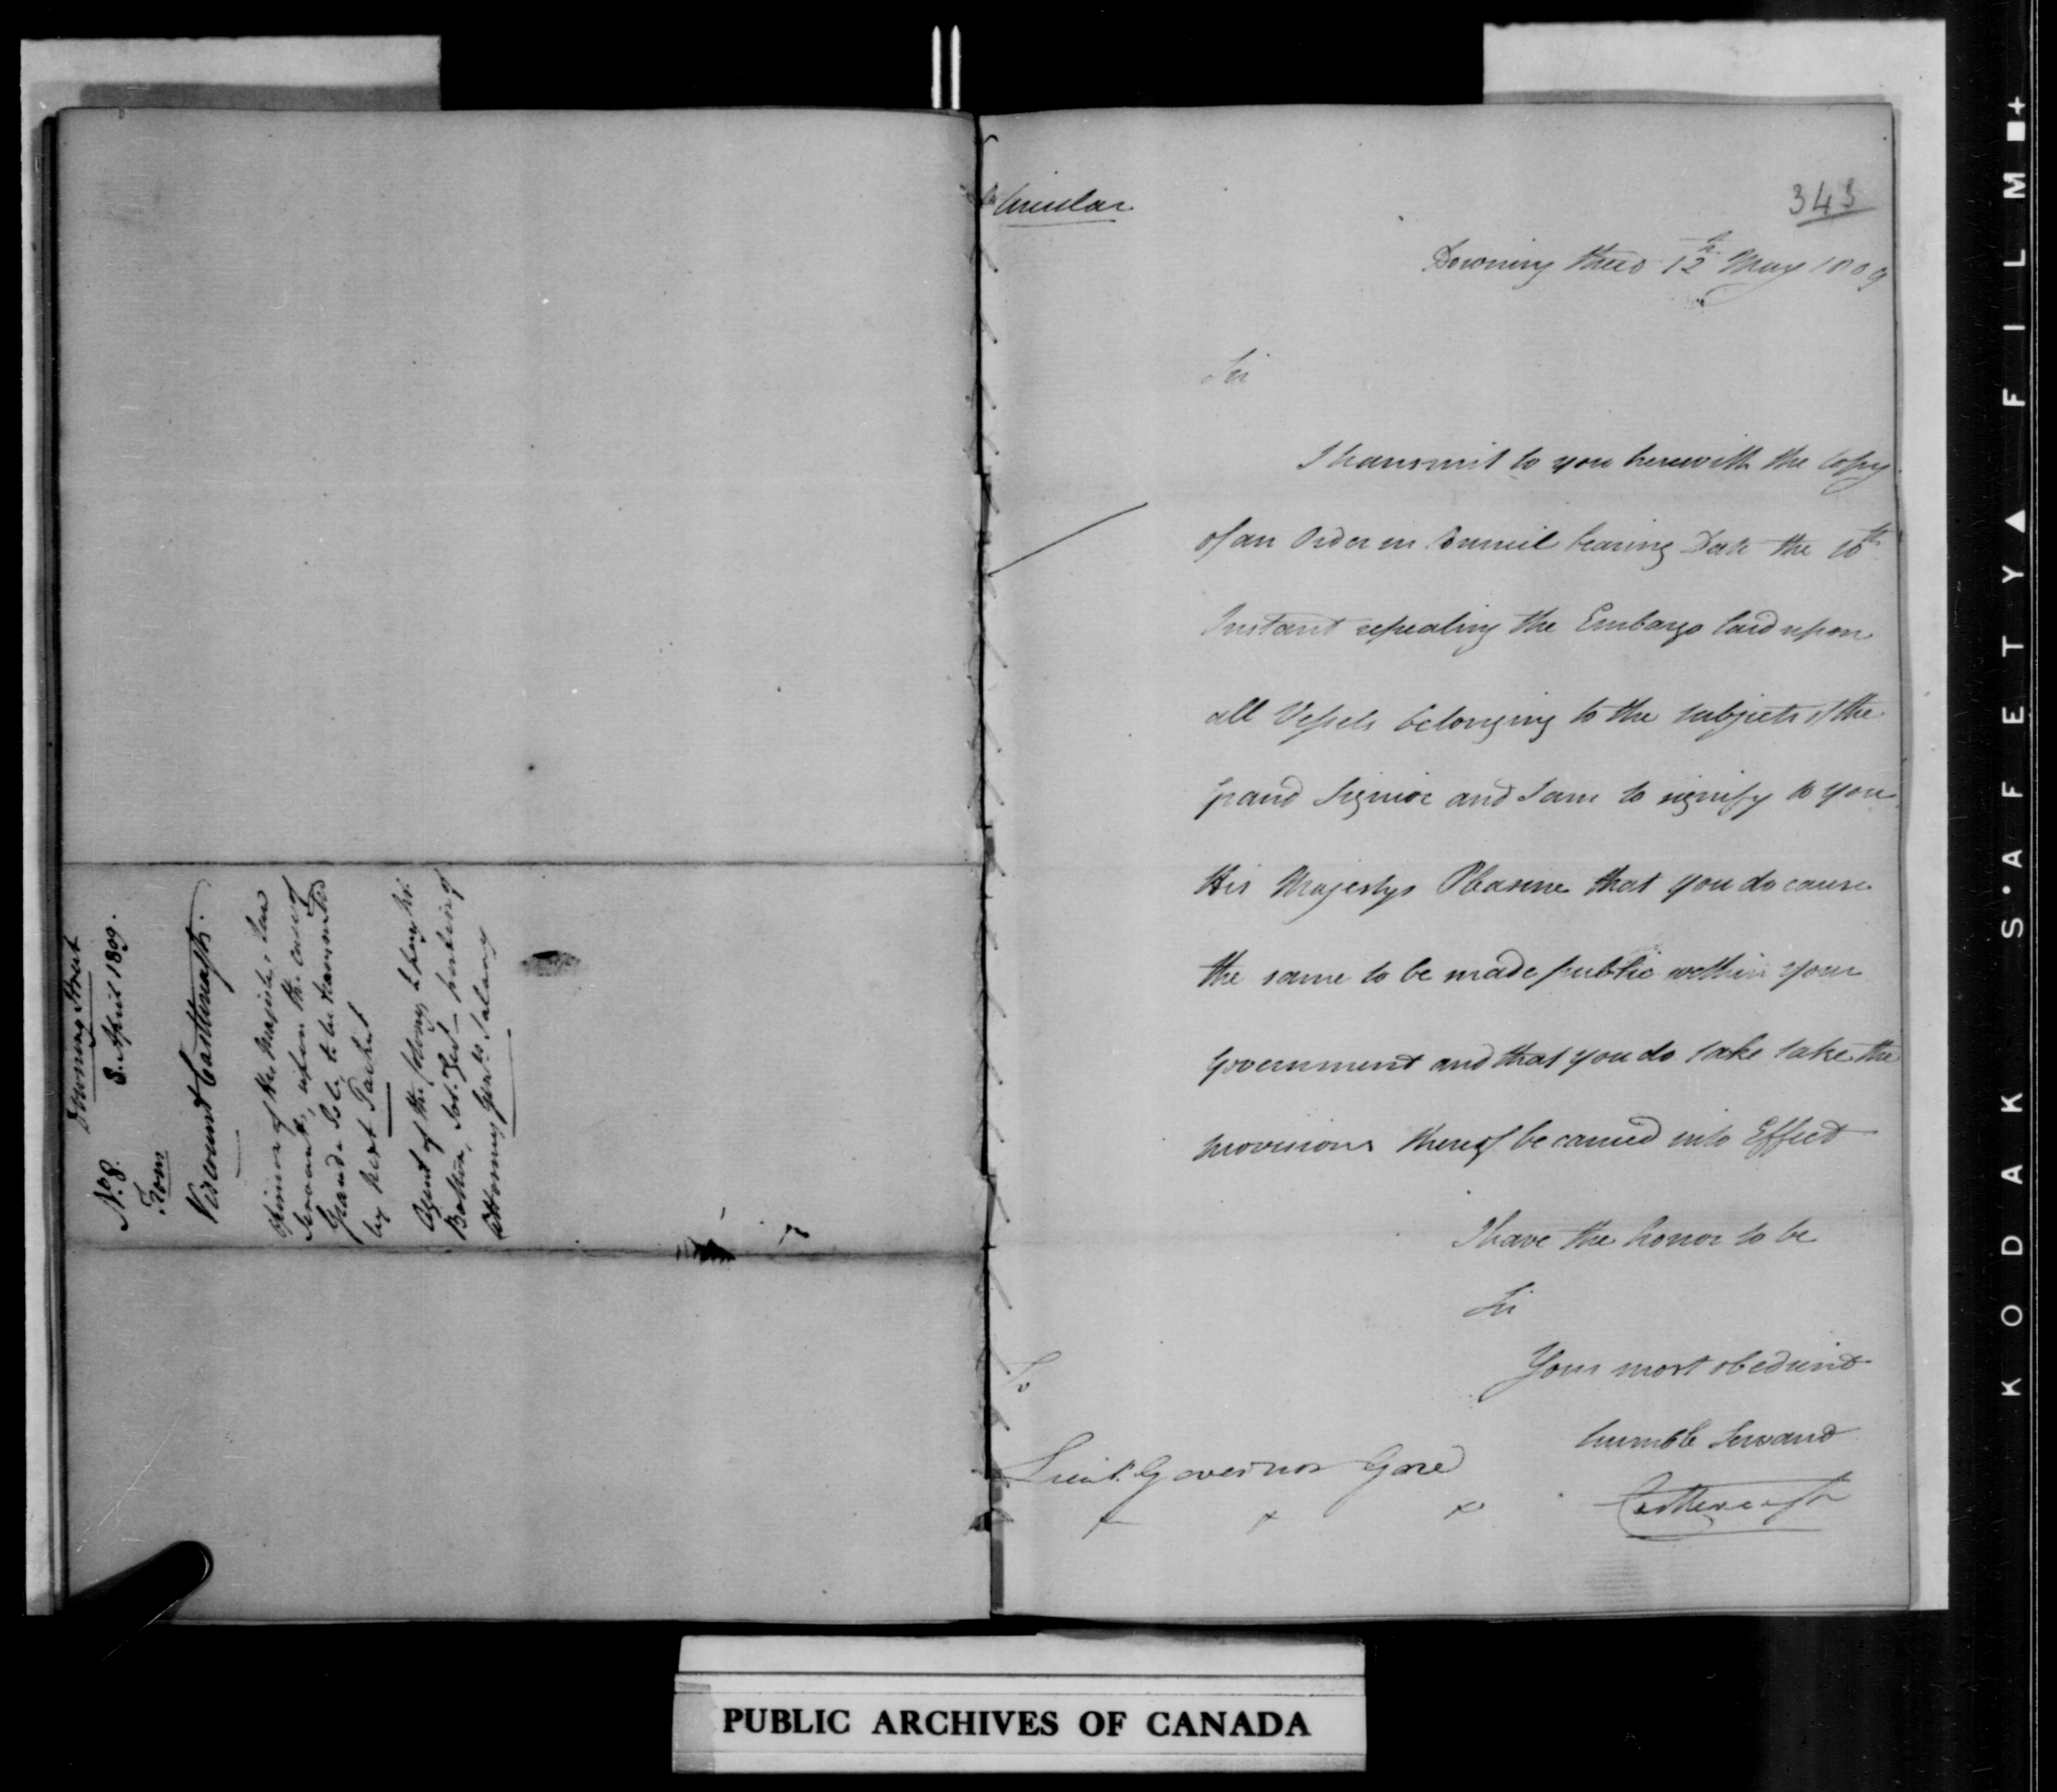 Downing Street
8. April 1809.
No. 8.
From
Viscount Castlereagh.
Opinion of His Majesty's Law
Servants, upon the case of
Grande Isle to be transmitted
by next Packet
Agent of the Colony to pay Mr.
Bolton, portion of
Attorney Gen.ls Salary
Circular
343
Downing Street 12th May 1809
Sir
I transmit to you herewith the Copy
of an Order in Council bearing Date the 10th
Instant repealing the Embargo laid upon
all Vessels belonging to the subjects of the
Grand Signior and I am to signify to you
His Majestys Pleasure that you do cause
the same to be made public within your
Government and that you do take take the
provisions thereof be carried into Effect
I have the honor to be
Sir
Your most obedient
humble Servant
Castlereagh
To
Lieut. Governor Gore
PUBLIC ARCHIVES OF CANADA
KODAK S•AFETY▲FILM■+